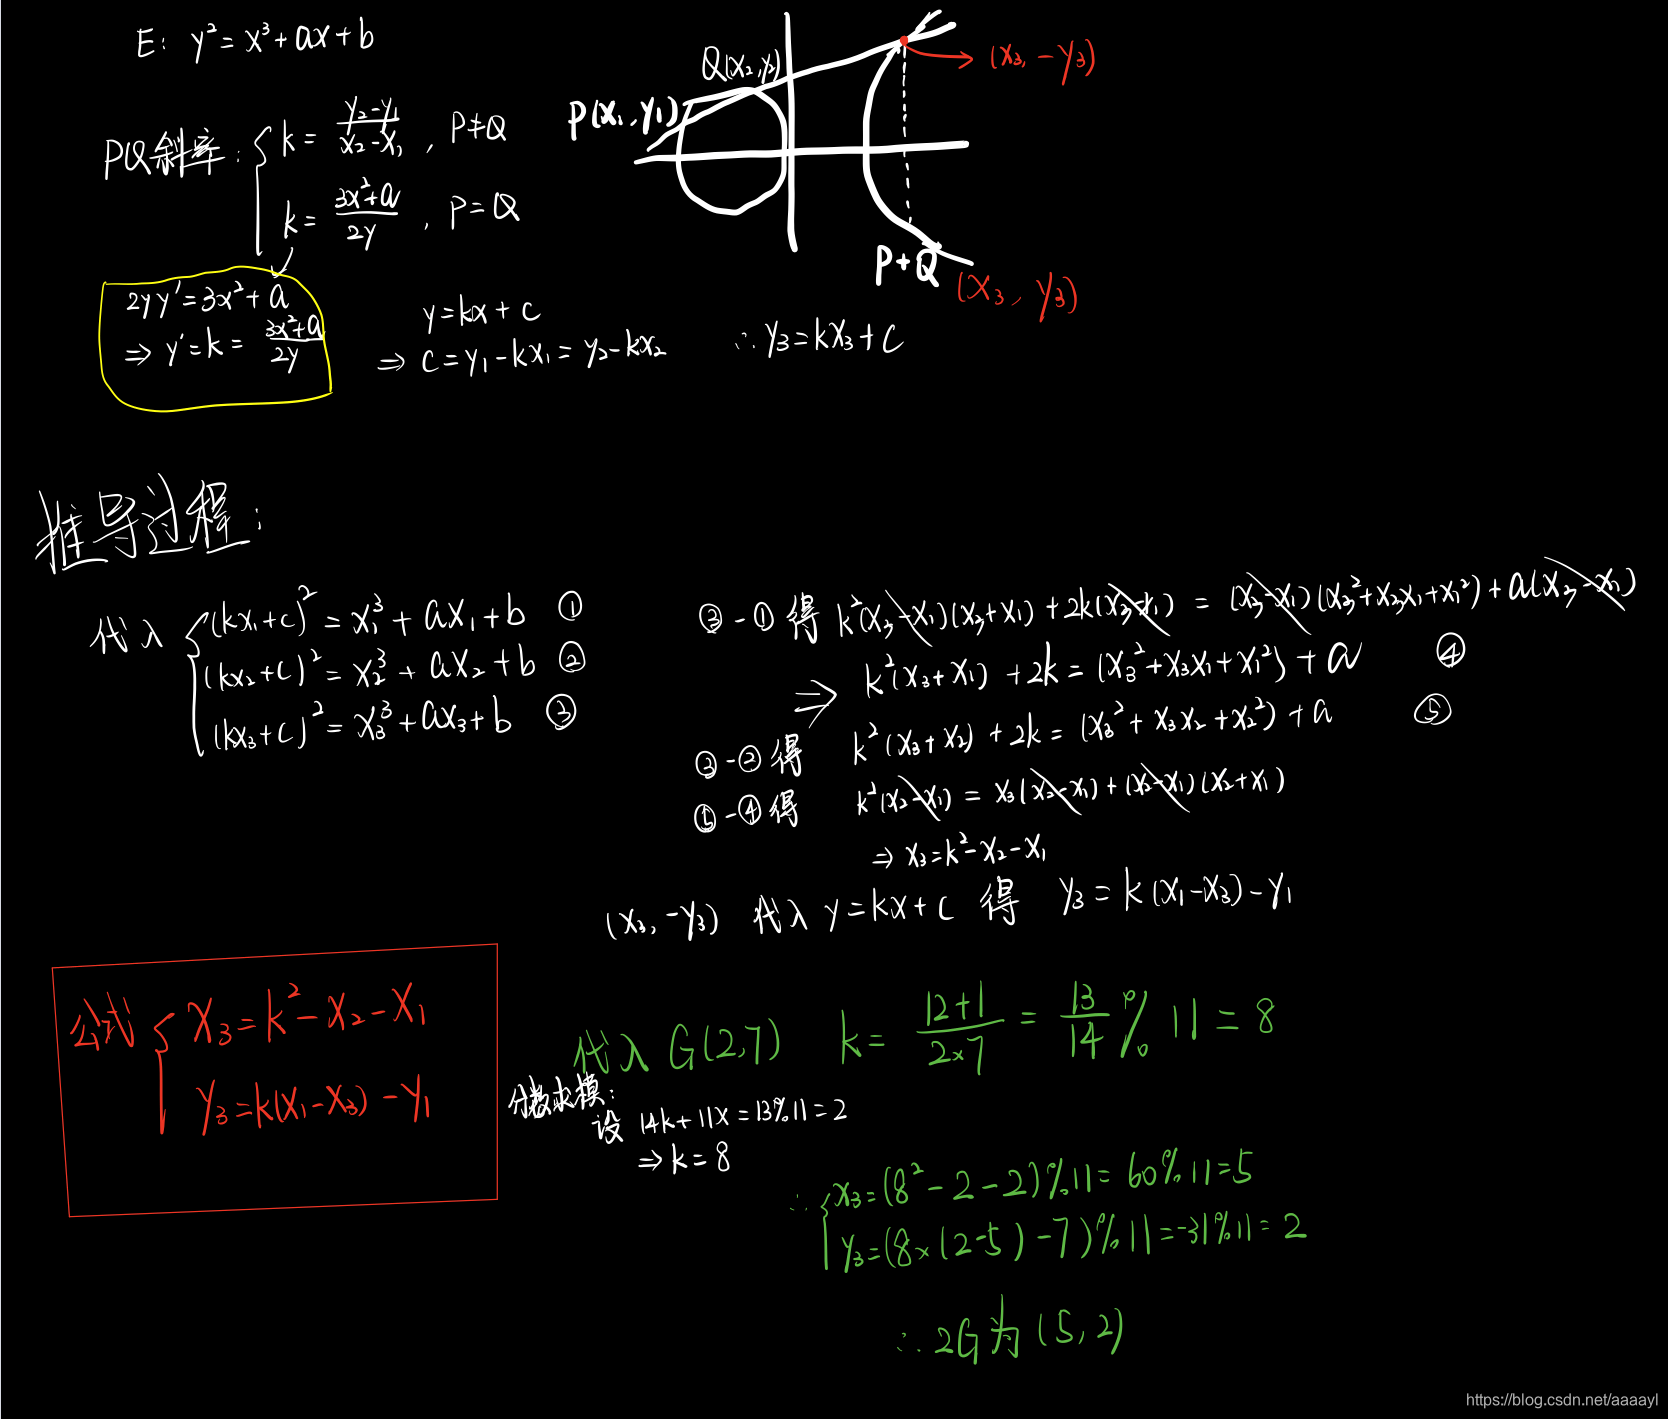 E: y² = x³ + ax + b
Q(x₂, y₂)
(x₃, -y₃)
P(x₁, y₁)
PQ斜率: { k = (y₂-y₁)/(x₂-x₁), P≠Q
k = (3x²+a)/(2y), P = Q
P+Q
(x₃, y₃)
2yy' = 3x² + a
⇒ y' = k = (3x²+a)/(2y)
y = kx + c
⇒ c = y₁ - kx₁ = y₂ - kx₂
∴ y₃ = kx₃ + c
推导过程:
代入 { (kx₁+c)² = x₁³ + ax₁ + b ①
(kx₂+c)² = x₂³ + ax₂ + b ②
(kx₃+c)² = x₃³ + ax₃ + b ③
③ - ① 得 k²(x₃-x₁)(x₃+x₁) + 2k(x₃-x₁) = (x₃-x₁)(x₃²+x₃x₁+x₁²) + a(x₃-x₁)
⇒ k²(x₃+x₁) + 2k = (x₃²+x₃x₁+x₁²) + a ④
③ - ② 得 k²(x₃+x₂) + 2k = (x₃²+x₃x₂+x₂²) + a ⑤
⑤ - ④ 得 k²(x₂-x₁) = x₃(x₂-x₁) + (x₂-x₁)(x₂+x₁)
⇒ x₃ = k² - x₂ - x₁
(x₃, -y₃) 代入 y = kx + c 得 y₃ = k(x₁-x₃) - y₁
公式 { x₃ = k² - x₂ - x₁
y₃ = k(x₁-x₃) - y₁
代入 G(2,7) k = (12+1)/(2×7) = 13/14 % 11 = 8
分数求模:
设 14k + 11x = 13%11 = 2
⇒ k = 8
∴ { x₃ = (8² - 2 - 2)%11 = 60%11 = 5
y₃ = (8×(2-5) - 7)%11 = -31%11 = 2
∴ 2G为(5,2)
https://blog.csdn.net/aaaayl